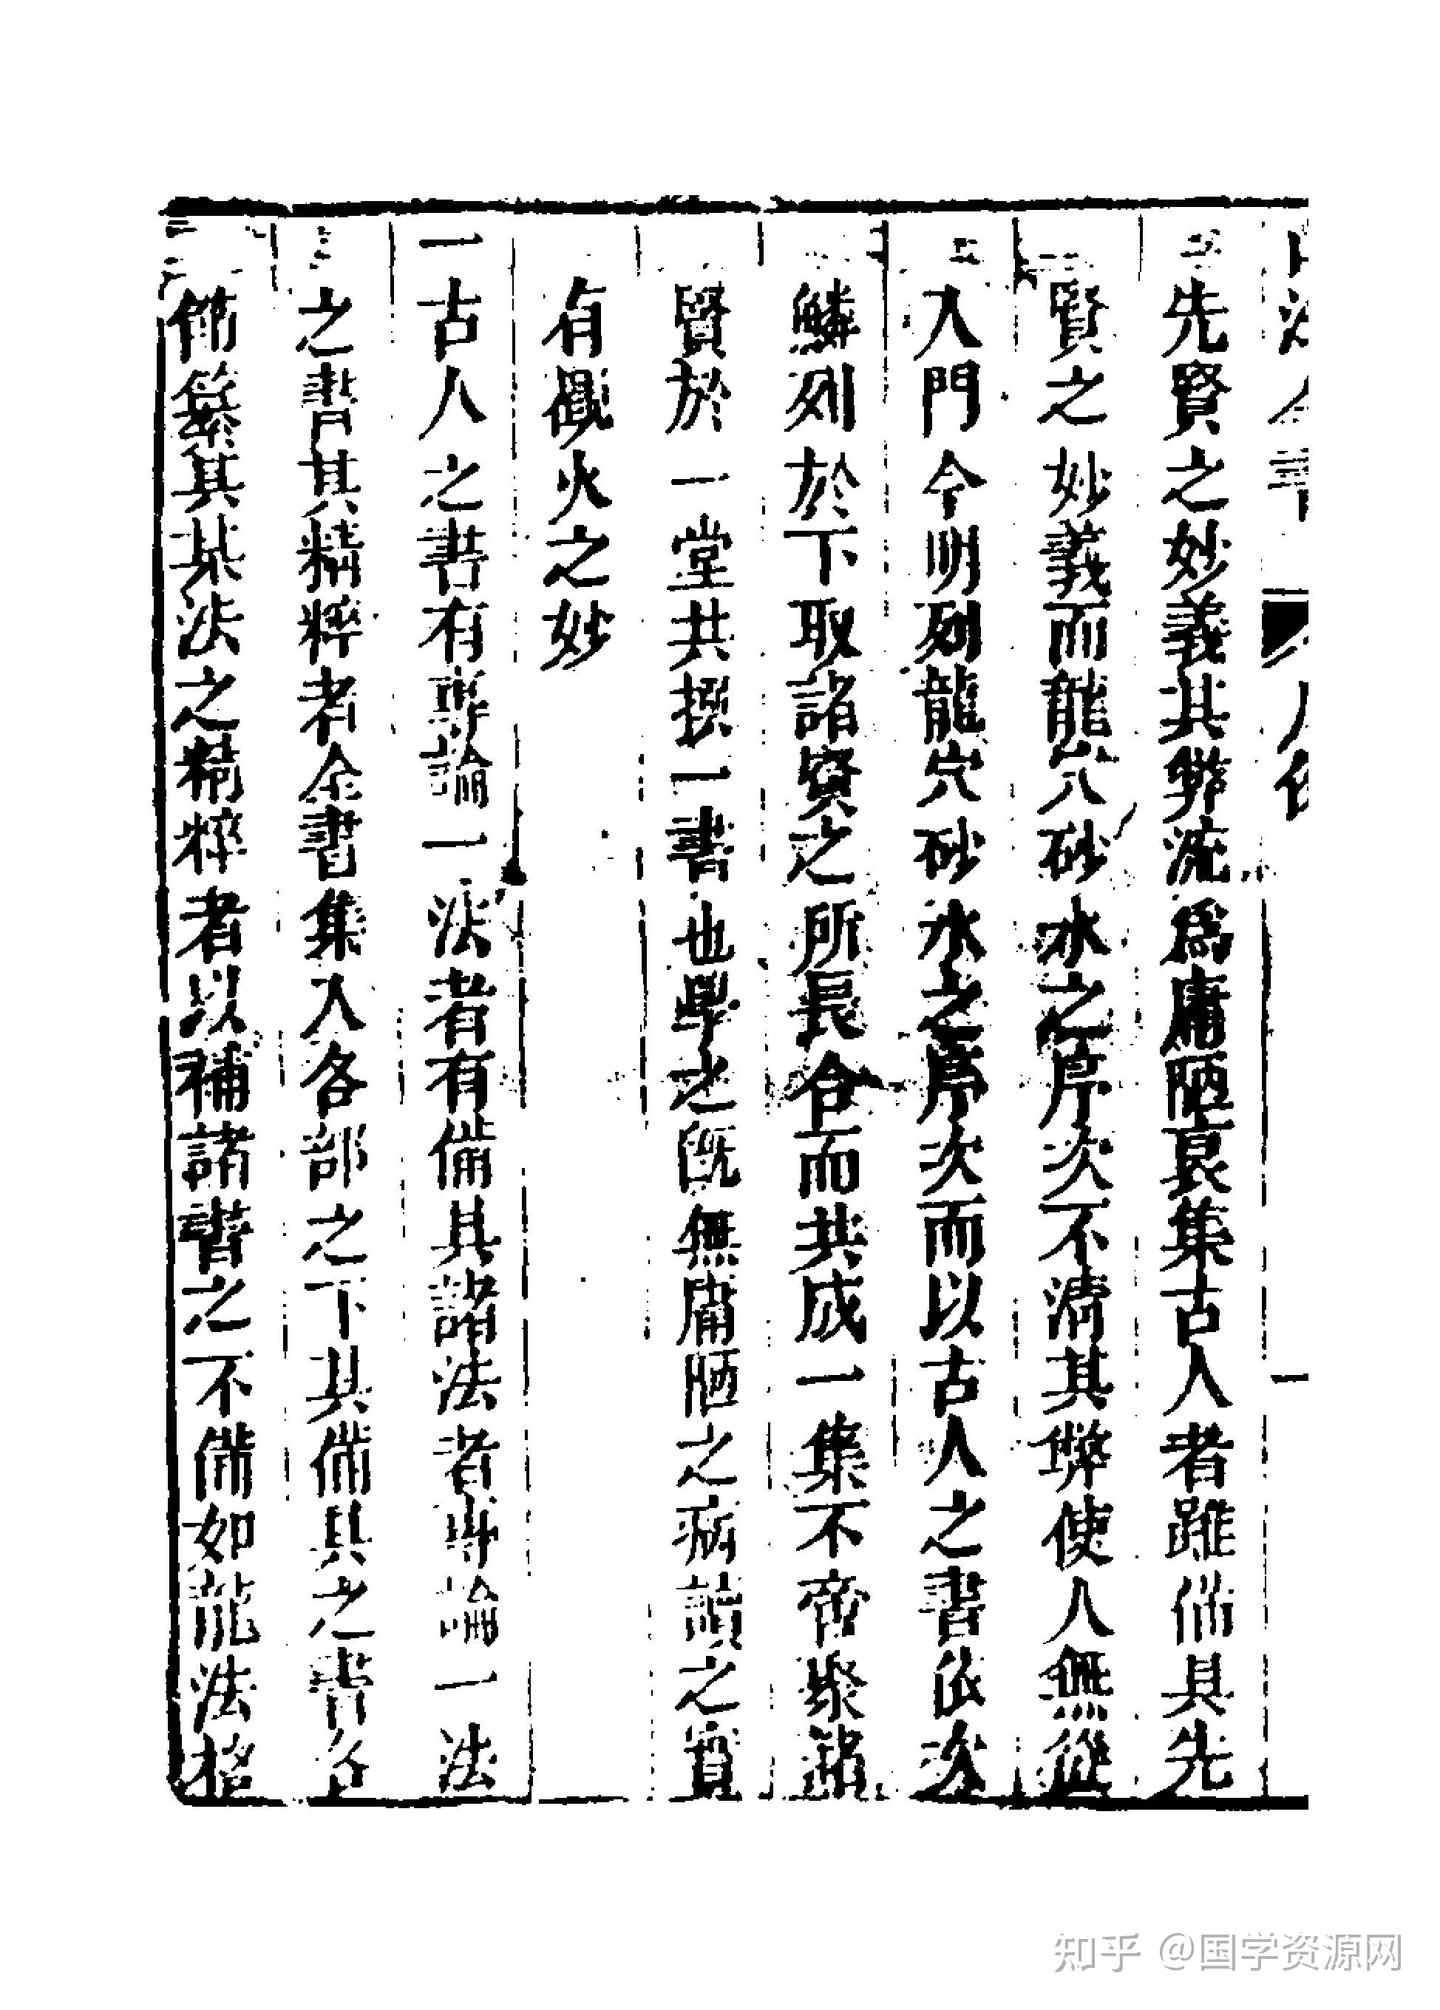 先賢之妙義其弊流為庸陋裒集古人者雖俻其先
賢之妙義而龍穴砂水之序次不清其弊使人無從
入門今明列龍穴砂水之序次而以古人之書依次
鱗列於下取諸賢之所長合而共成一集不啻聚諸
賢於一堂共撰一書也學之旣無庸陋之病讀之實
有觀火之妙
一古人之書有專論一法者有備其諸法者專論一法
之書其精粹者全書集入各部之下其備其之書各
俻纂其某法之精粹者以補諸書之不備如龍法格
知乎 @国学资源网